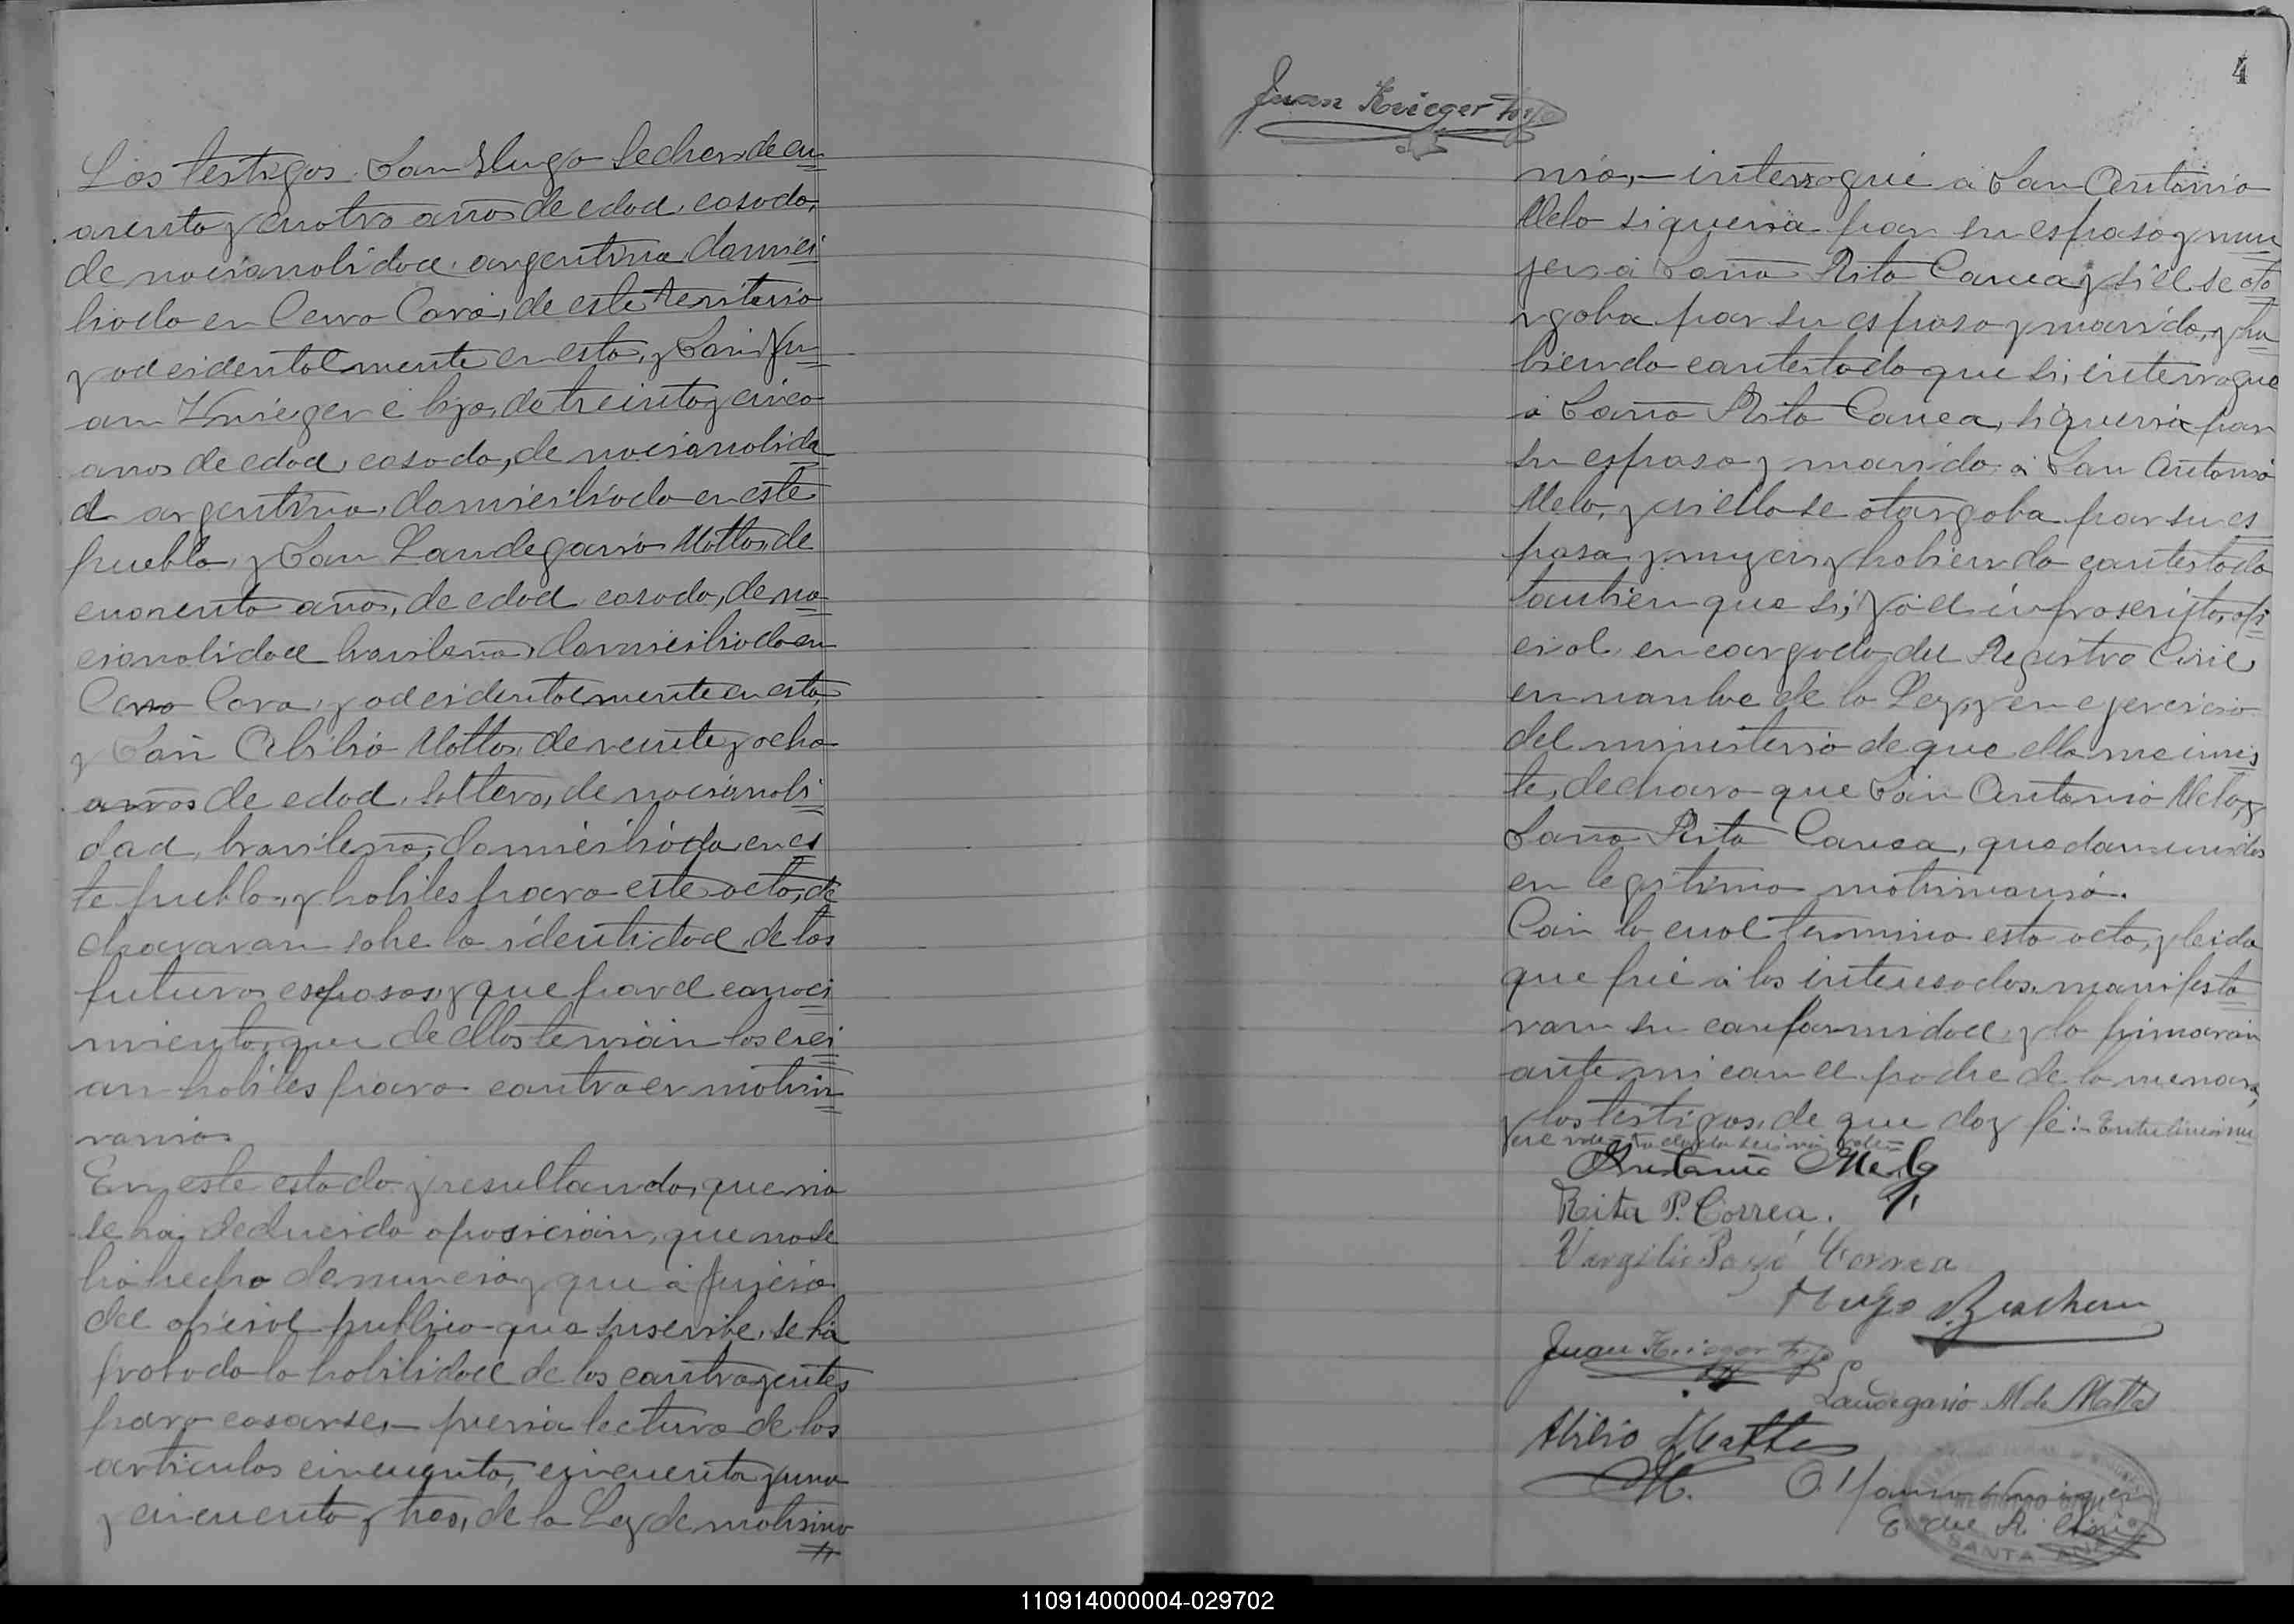 Los testigos Don Hugo Lecher, de cu
arenta y cuatro años de edad, casado,
de nacionalidad argentina, domici
liado en Cerro Corá, de este territorio
y accidentalmente en esta, y Don Ju
an Krieger é hijo, de treinta y cinco
anos de edad, casado, de nacionalida
d argentina, domiciliado en este
pueblo, y Don Laudegario Mattos, de
cuarenta años, de edad casado, de na
cionalidad brasilena domiciliado en
Cerro Cora, y accidentalmente en esta,
y Don Abilio Mattos, de veinte y ocho
anos de edad, soltero, de nacionali
dad, brasilena, domiciliado en es
te pueblo, y habiles para este acto, de
clararan sobre la identidad de los
futuros esposos, y que por el conoci
miento, que de ellos tenian los crei
an habiles para contraer matrim
onio.
En este estado y resultando, que no
se ha deducido oposición, que no se
há hecho denuncia, y que á juicio
del oficial publico que suscribe, se há
probado la habilidad de los contrayentes
para casarse, — previa lectura de los
articulos cincuenta, cincuenta y uno
y cincuenta y tres, de la Ley de matrimo
Juan Krieger hijo
4
nio, — interrogué á Don Antonio
Melo si queria por su esposa y mu
jer á Doña Rita Correa, y si él se oto
rgaba por su esposo y marido, y ha
biendo contestado que si, interrogue
á Doña Rita Correa, si queria por
su esposo y marido á Don Antonio
Melo, y si ella se otorgaba por su es
posa y mujer, y habiendo contestado
tambien que si; Yo el infrascripto, ofi
cial, encargado del Registro Civil,
en nombre de la Ley, y en ejercicio
del ministerio de que ella me invis
te, declaro que Don Antonio Melo, y
Doña Rita Correa, quedan unidos
en legitimo matrimonio.
Con lo cual termino esta acta, y leida
que fué á los interesados, manifesta
ron su conformidad, y la firmarón
ante mi con el padre de la menor,
y los testigos, de que doy fé: — Entre lineas mu
Antonio Melo
Rita P. Correa.
Vergilio Correa
Hugo
Juan Krieger hijo
Laudegario M de Mattos
Abilio Mattos
M.
E. del R. Civil
REGISTRO CIVIL
SANTA ANA
110914000004-029702